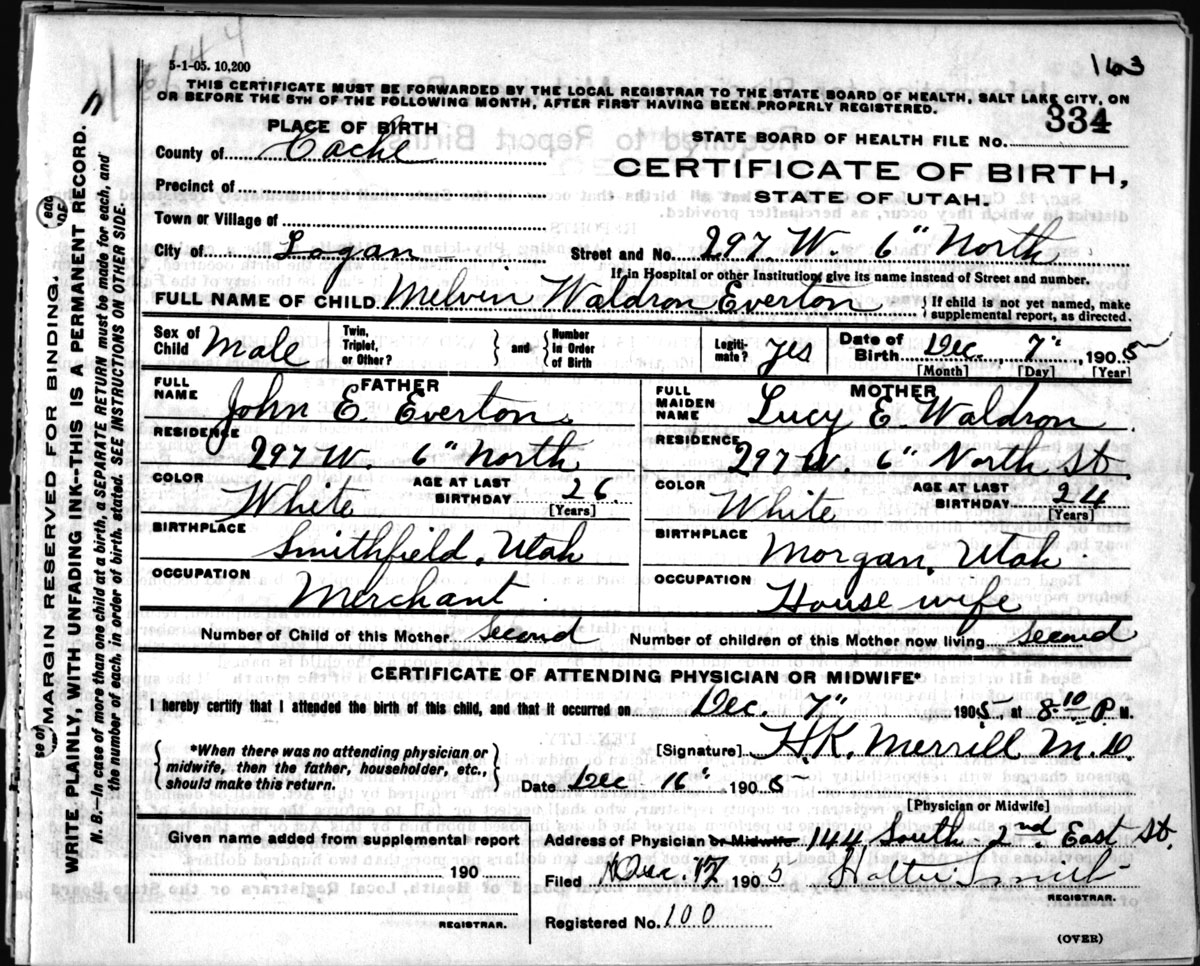 5-1-05. 10,200
163
THIS CERTIFICATE MUST BE FORWARDED BY THE LOCAL REGISTRAR TO THE STATE BOARD OF HEALTH, SALT LAKE CITY, ON
OR BEFORE THE 5TH OF THE FOLLOWING MONTH, AFTER FIRST HAVING BEEN PROPERLY REGISTERED.
PLACE OF BIRTH
STATE BOARD OF HEALTH FILE NO. 334
County of Cache
CERTIFICATE OF BIRTH,
Precinct of
STATE OF UTAH.
Town or Village of
City of Logan Street and No. 297 W. 6" North
If in Hospital or other Institution, give its name instead of Street and number.
FULL NAME OF CHILD Melvin Waldron Everton { If child is not yet named, make supplemental report, as directed.
Sex of Child Male Twin, Triplet, or Other? } and { Number in Order of Birth Legitimate? yes Date of Birth Dec. 7", 1905
[Month] [Day] [Year]
FATHER
FULL NAME John E. Everton
RESIDENCE 297 W. 6" North
COLOR White AGE AT LAST BIRTHDAY 26
[Years]
BIRTHPLACE Smithfield, Utah
OCCUPATION Merchant
MOTHER
FULL MAIDEN NAME Lucy E. Waldron
RESIDENCE 297 W. 6" North St
COLOR White AGE AT LAST BIRTHDAY 24
[Years]
BIRTHPLACE Morgan, Utah
OCCUPATION House wife
Number of Child of this Mother Second Number of children of this Mother now living Second
CERTIFICATE OF ATTENDING PHYSICIAN OR MIDWIFE*
I hereby certify that I attended the birth of this child, and that it occurred on Dec. 7" 1905, at 8-10 P M.
{ *When there was no attending physician or
midwife, then the father, householder, etc.,
should make this return. }
[Signature] H.K. Merrill M D
Date Dec 16" 1905
[Physician or Midwife]
Given name added from supplemental report
190
REGISTRAR.
Address of Physician or Midwife 144 South 2nd East St.
Filed Dec. 17 1905
REGISTRAR.
Registered No. 100
(OVER)
MARGIN RESERVED FOR BINDING.
WRITE PLAINLY, WITH UNFADING INK—THIS IS A PERMANENT RECORD.
N. B.—In case of more than one child at a birth, a SEPARATE RETURN must be made for each, and
the number of each, in order of birth, stated. SEE INSTRUCTIONS ON OTHER SIDE.